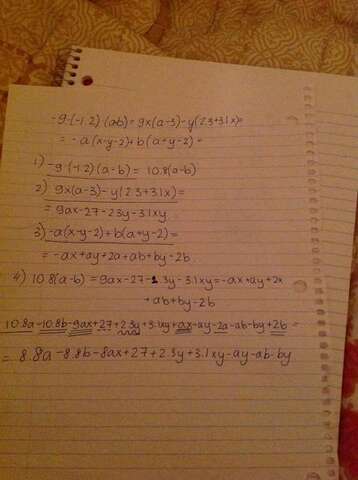 -9·(-1.2)·(a-b)=9x(a-3)-y(2.3+3.1x)=
= -a(x-y-2)+b(a+y-2)=
1) -9·(-1.2)(a-b) = 10.8(a-b)
2) 9x(a-3)-y(2.3+3.1x)=
= 9ax-27-2.3y-3.1xy
3) -a(x-y-2)+b(a+y-2)=
= -ax+ay+2a+ab+by-2b
4) 10.8(a-b) = 9ax-27-2.3y-3.1xy=-ax+ay+2a
+ab+by-2b
10.8a-10.8b-9ax+27+2.3y+3.1xy+ax-ay-2a-ab-by+2b =
= 8.8a-8.8b-8ax+27+2.3y+3.1xy-ay-ab-by